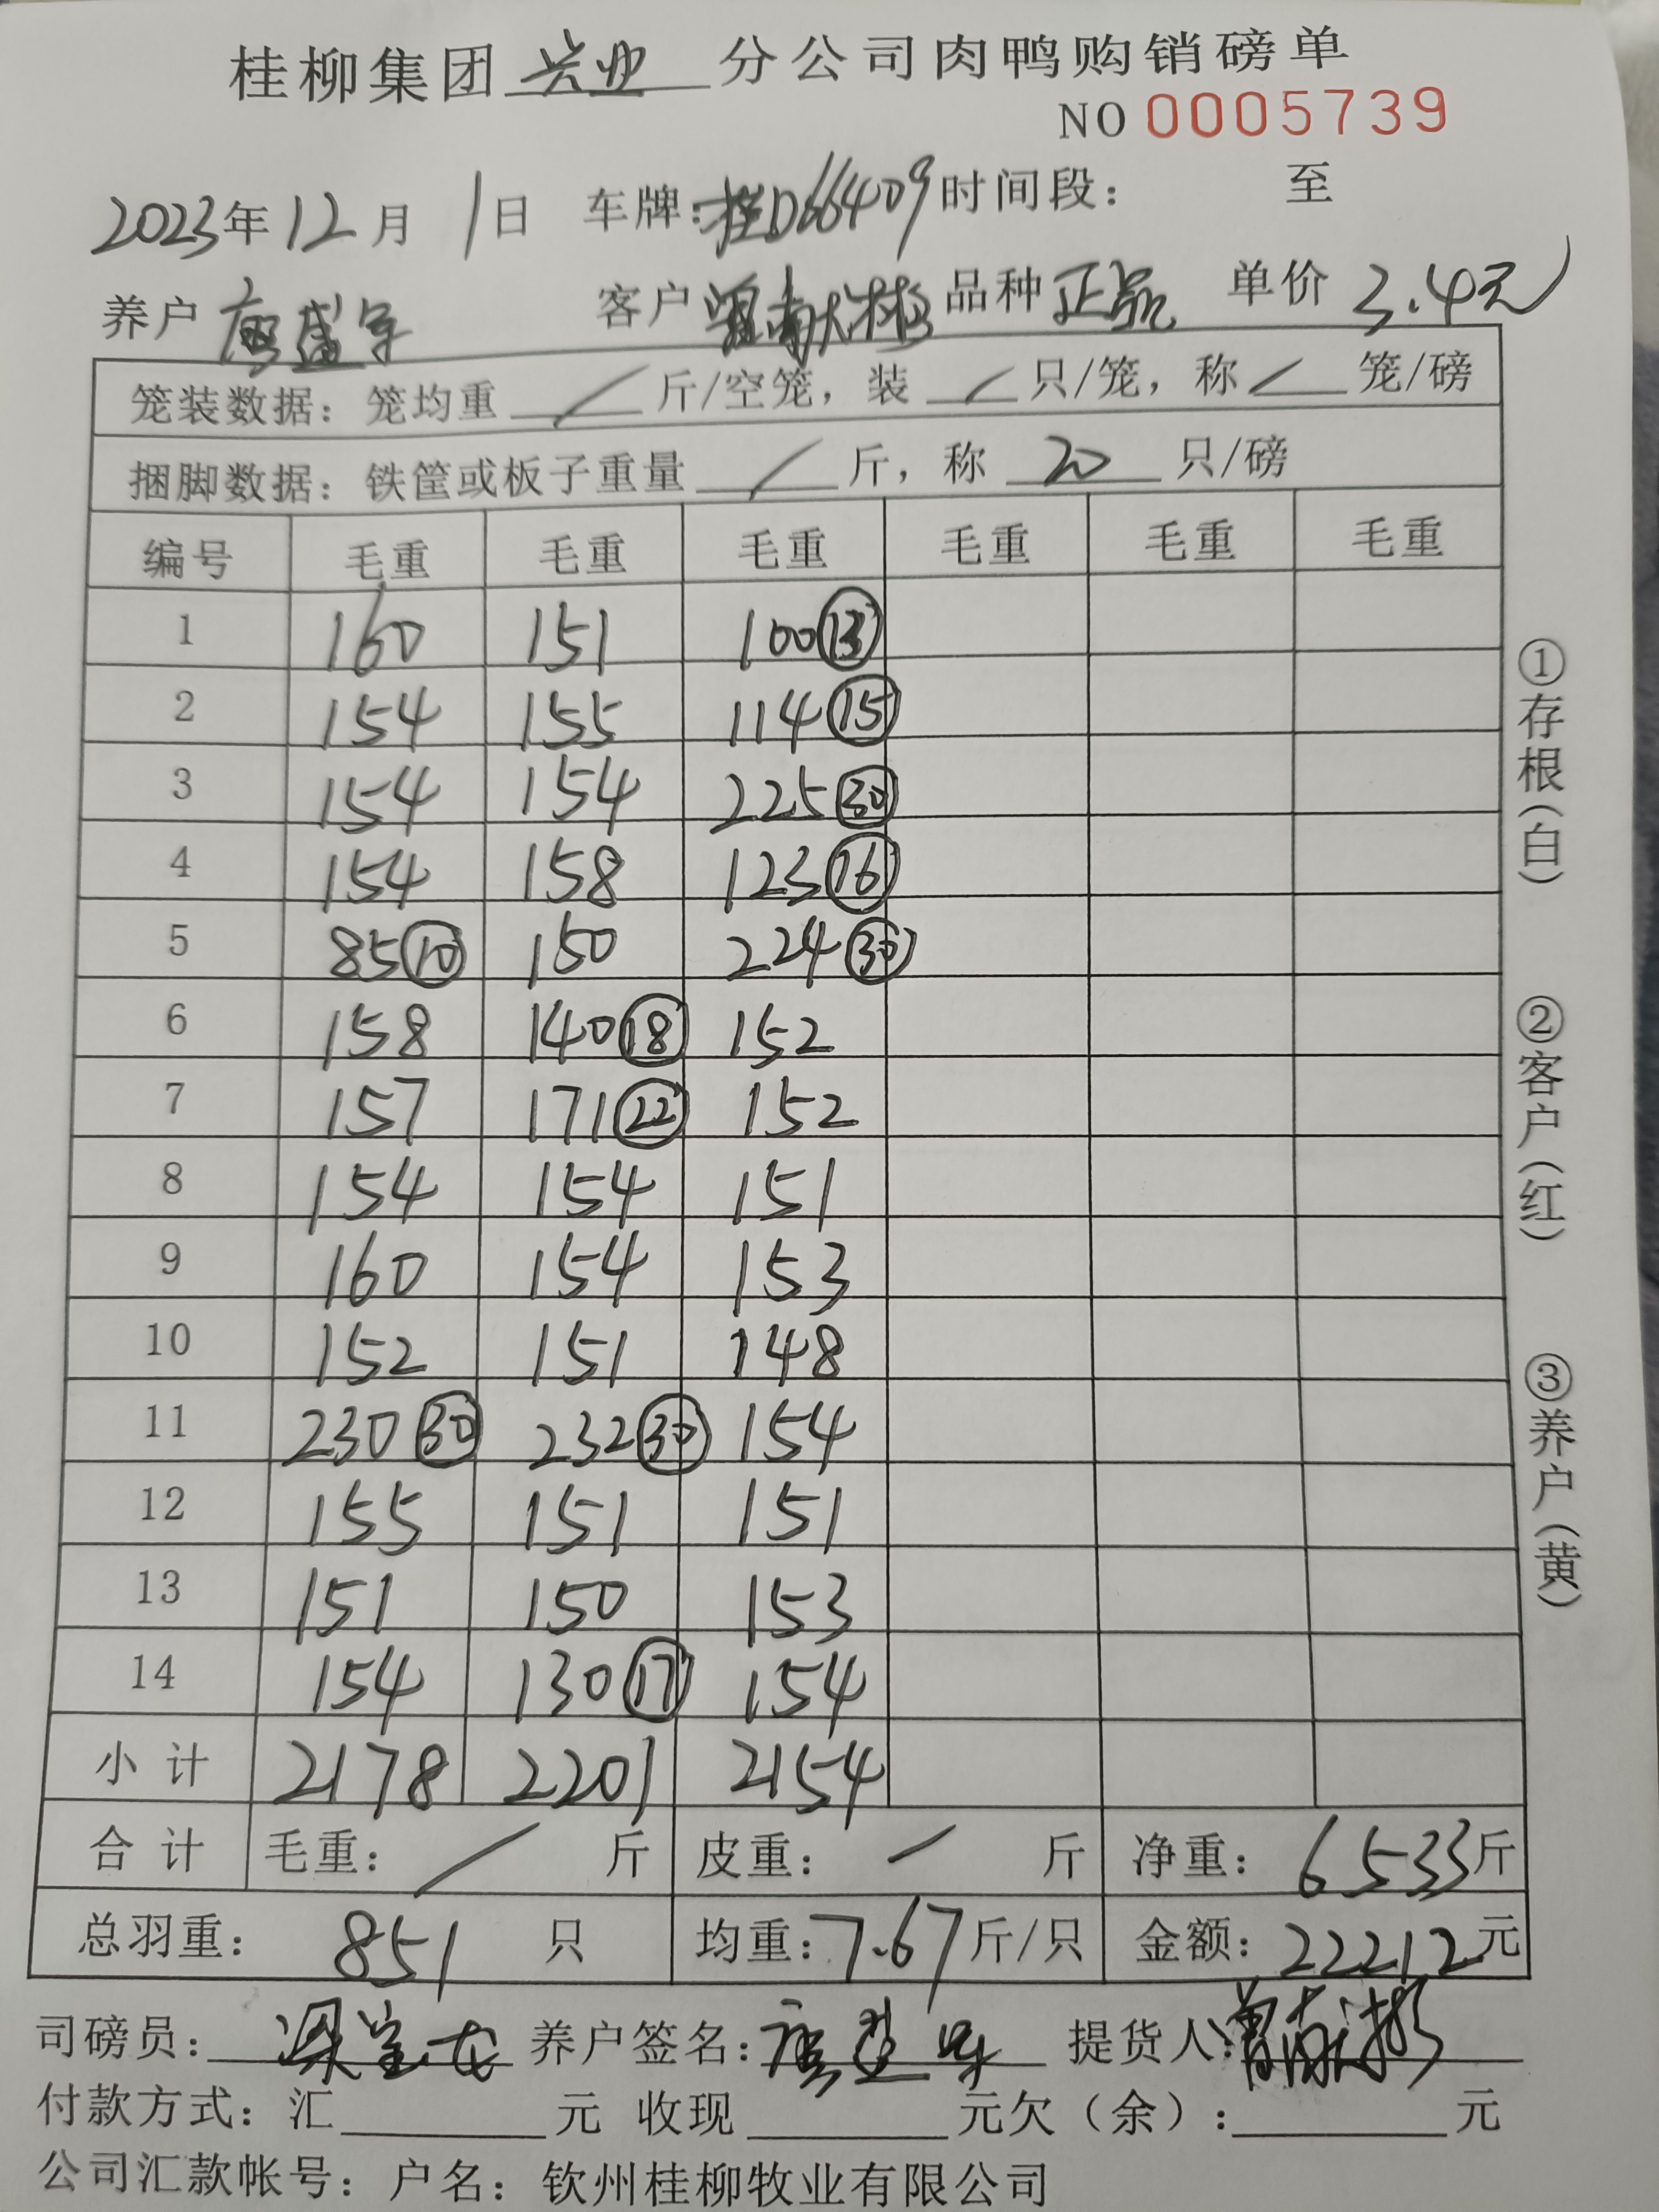 桂柳集团 兴业 分公司肉鸭购销磅单
NO 0005739
2023年12月 1日 车牌:桂D66409 时间段: 至
养户 客户 品种 正品 单价 3.4元
笼装数据: 笼均重 / 斤/空笼, 装 / 只/笼, 称 / 笼/磅
捆脚数据: 铁筐或板子重量 / 斤, 称 20 只/磅
编号 毛重 毛重 毛重 毛重 毛重 毛重
1 160 151 100 ⑬
2 154 155 114 ⑮
3 154 154 225 ㉚
4 154 158 123 ⑯
5 85 ⑩ 150 224 ㉚
6 158 140 ⑱ 152
7 157 171 ㉒ 152
8 154 154 151
9 160 154 153
10 152 151 148
11 230 ㉚ 232 ㉚ 154
12 155 151 151
13 151 150 153
14 154 130 ⑰ 154
小计 2178 2201 2154
合计 毛重: / 斤 皮重: / 斤 净重: 6533斤
总羽重: 851 只 均重:7.67斤/只 金额:22212元
司磅员: 养户签名: 提货人:
付款方式: 汇 元 收现 元欠(余): 元
公司汇款帐号: 户名: 钦州桂柳牧业有限公司
①存根(白)
②客户(红)
③养户(黄)